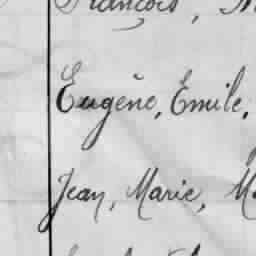 François,
Eugène, Emile,
Jean, Marie,